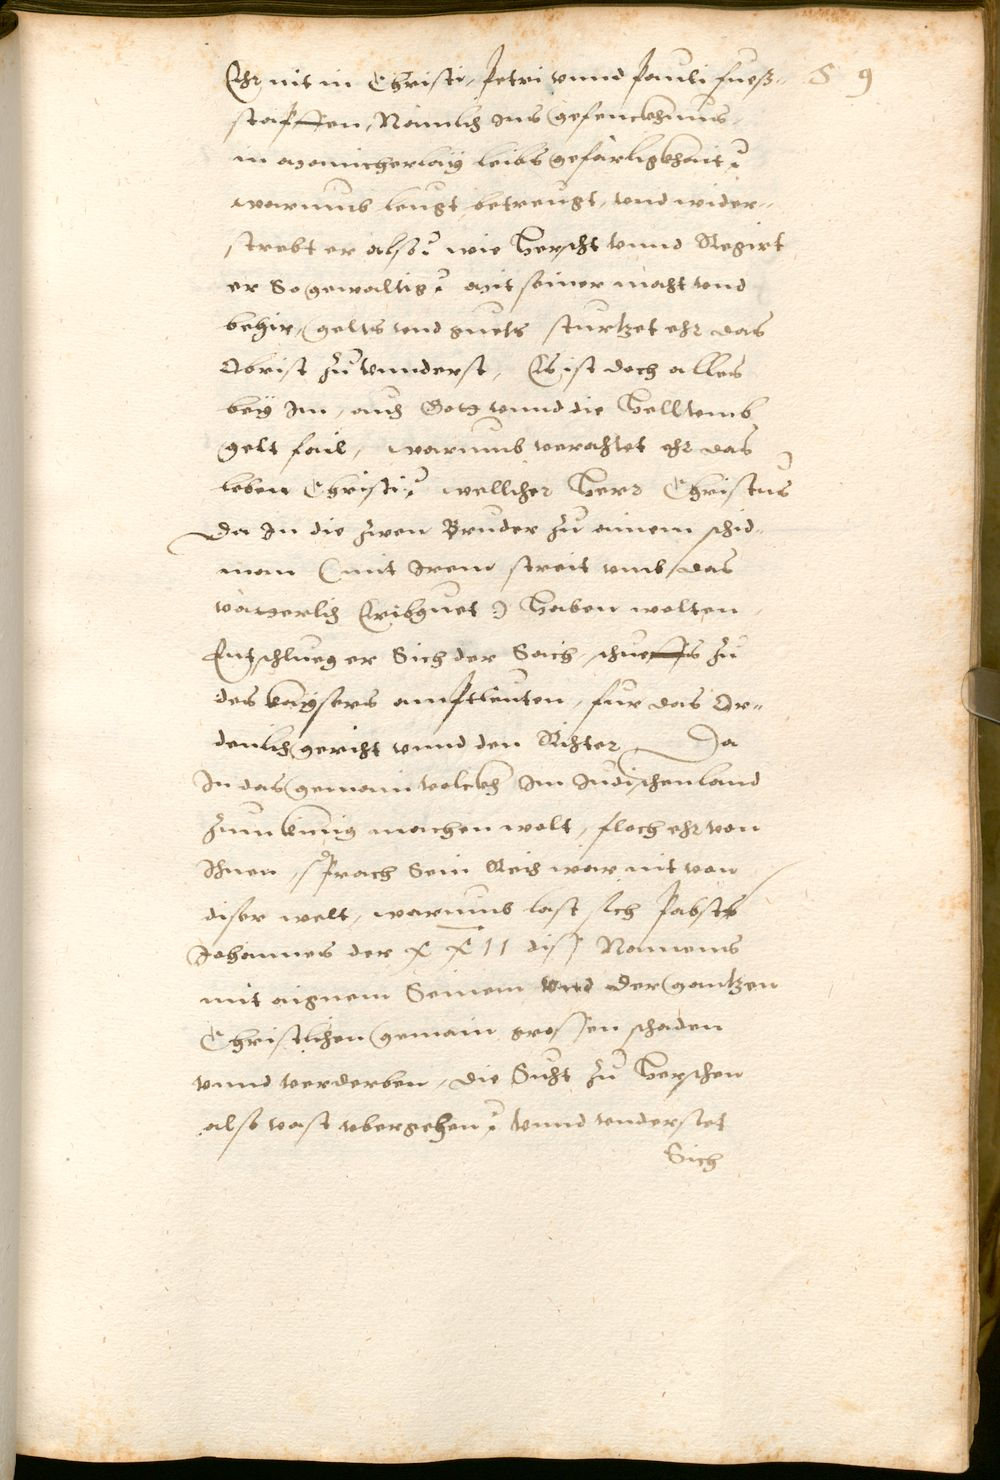 Ehr nit in Christi, Petri vnnd Pauli fueß- 89
stapffen, Nämlich Ins gefenckhnus,
in manicherlaÿ leibs gefärligkhait?
warumb leugt betreugt, vnd wider-
strebt er also? wie Herscht vnnd Regirt
er So gewaltig? mit seiner macht vnd
begir, geltts vnd guets sturtzet ehr das
Obrist zu vnnderst, Es ist doch alles
beÿ Im, auch Gott vnnd die Hell vmb
gelt fail, warumb verachtet ehr das
leben Christi? wellcher Herr Christus
Da In die zwen Bruder zu ainem schid-
man (mit Irem streit vmb das
vätterlich Erbguet) Haben wolten,
Entschlueg er Sich der Sach, schueffs zu
des kaÿsers amptleuten, fur das Or-
denlich gericht vnnd den Richter, Da
In das gemain volckh Im Judischenland
zum kunig machen wolt, floch ehr von
Ihnen, sprach Sein Reich war nit von
diser welt, warumb last sich Pabst
Johannes der XXII diss Namens
mit aignem Seinem vnd der gantzen
Christlichen gemain grossen schaden
vnnd verderben, die Sucht zu Herschen
also vast vbergehen? vnnd vnderstet
Sich